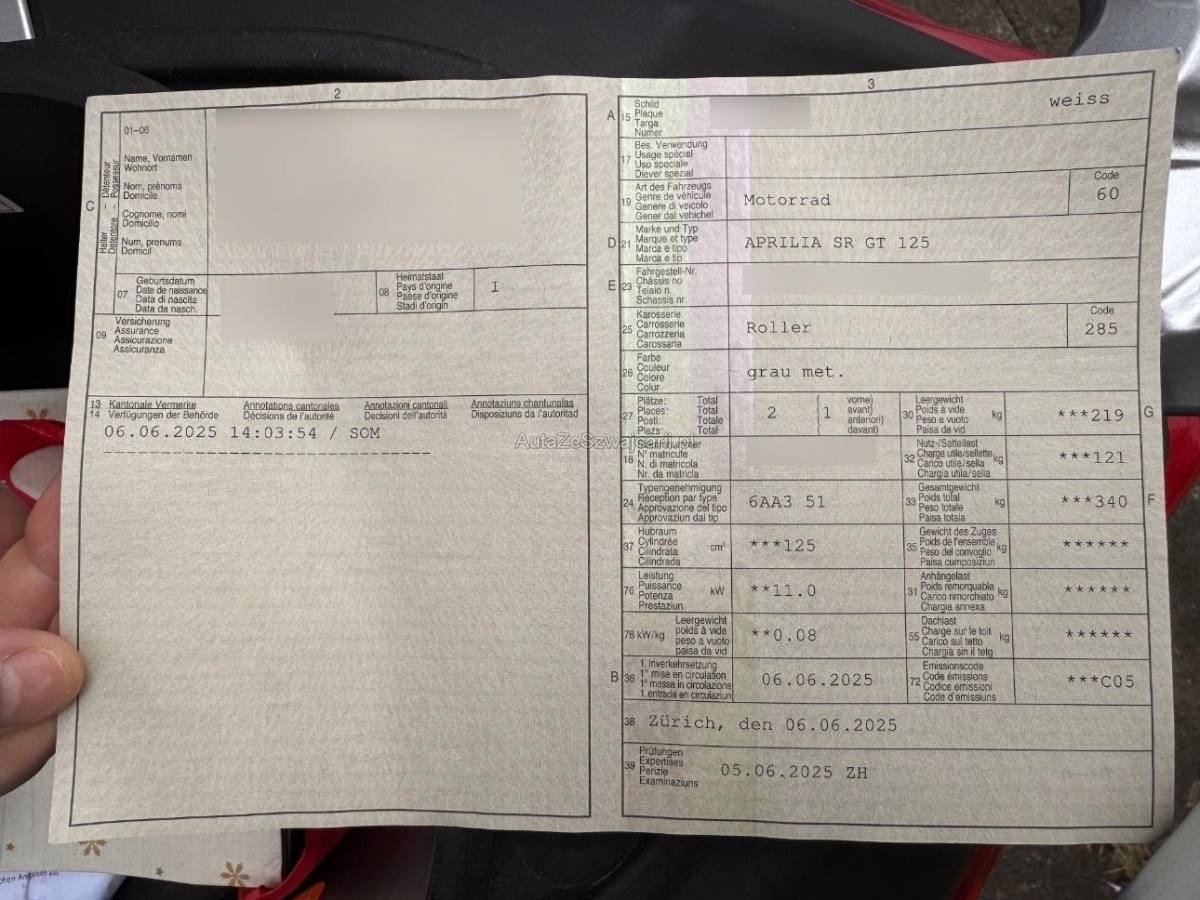 2
C
01-06
Halter - Détenteur
Detentore - Possessur
Name, Vornamen
Wohnort
Nom, prénoms
Domicile
Cognome, nomi
Domicilio
Num, prenums
Domicil
07
Geburtsdatum
Date de naissance
Data di nascita
Data da nasch.
08
Heimatstaat
Pays d'origine
Paese d'origine
Stadi d'origin
I
09
Versicherung
Assurance
Assicurazione
Assicuranza
13 Kantonale Vermerke Annotations cantonales Annotazioni cantonali Annotaziuns chantunalas
14 Verfügungen der Behörde Décisions de l'autorité Decisioni dell'autorità Disposiziuns da l'autoritad
06.06.2025 14:03:54 / SOM
3
A 15
Schild
Plaque
Targa
Numer
weiss
17
Bes. Verwendung
Usage spécial
Uso speciale
Diever spezial
19
Art des Fahrzeugs
Genre de véhicule
Genere di veicolo
Gener dal vehichel
Motorrad
Code
60
D 21
Marke und Typ
Marque et type
Marca e tipo
Marca e tip
APRILIA SR GT 125
E 23
Fahrgestell-Nr.
Châssis no
Telaio n.
Schassis nr.
25
Karosserie
Carrosserie
Carrozzeria
Carossaria
Roller
Code
285
26
Farbe
Couleur
Colore
Colur
grau met.
27
Plätze: Total
Places: Total
Posti: Totale
Plazs: Total
2
( vorne)
( avant)
1 anteriori)
( davant)
30
Leergewicht
Poids à vide
Peso a vuoto
Paisa da vid
kg
***219
G
AutaZeSzwajcarii.pl
18
Stammnummer
N° matricule
N. di matricola
Nr. da matricla
32
Nutz-/Sattellast
Charge utile/sellette
Carico utile/sella
Chargia utila/sella
kg
***121
24
Typengenehmigung
Réception par type
Approvazione del tipo
Approvaziun dal tip
6AA3 51
33
Gesamtgewicht
Poids total
Peso totale
Paisa totala
kg
***340
F
37
Hubraum
Cylindrée
Cilindrata
Cilindrada
cm³
***125
35
Gewicht des Zuges
Poids de l'ensemble
Peso del convoglio
Paisa cumposiziun
kg
******
76
Leistung
Puissance
Potenza
Prestaziun
kW
**11.0
31
Anhängelast
Poids remorquable
Carico rimorchiato
Chargia annexa
kg
******
78 kW/kg
Leergewicht
poids à vide
peso a vuoto
paisa da vid
**0.08
55
Dachlast
Charge sur le toit
Carico sul tetto
Chargia sin il tetg
kg
******
B 36
1. Inverkehrsetzung
1re mise en circulation
1a messa in circolazione
1. entrada en circulaziun
06.06.2025
72
Emissionscode
Code émissions
Codice emissioni
Code d'emissiuns
***C05
38 Zürich, den 06.06.2025
39
Prüfungen
Expertises
Perizie
Examinaziuns
05.06.2025 ZH